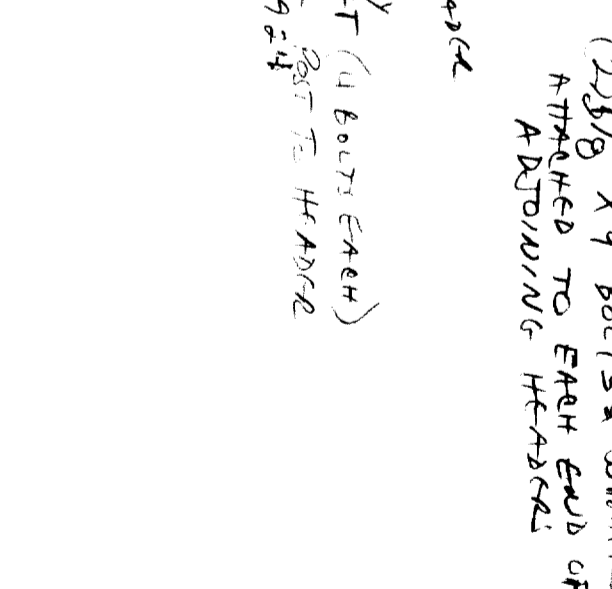 (2) 5/8 X 9 BOLTS &
ATTACHED TO EACH END OF
ADJOINING HEADERS
ADER
T (4 BOLTS EACH)
POST TO HEADER